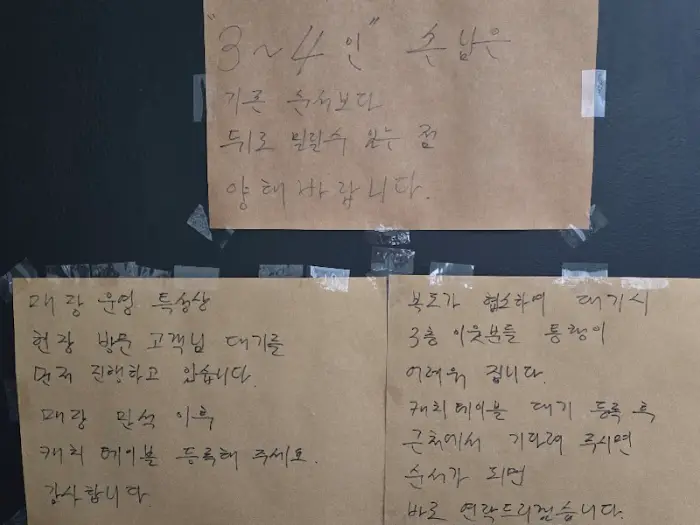 "3~4인" 손님은
기존 순서보다
뒤로 밀릴수 있는 점
양해바랍니다.
매장 운영 특성상
현장 방문 고객님 대기를
먼저 진행하고 있습니다.
매장 만석 이후
캐치 테이블 등록해 주세요.
감사합니다.
복도가 협소하여 대기시
3층 이웃분들 통행이
어려워 집니다.
캐치테이블 대기 등록 후
근처에서 기다려 주시면
순서가 되면
바로 연락드리겠습니다.